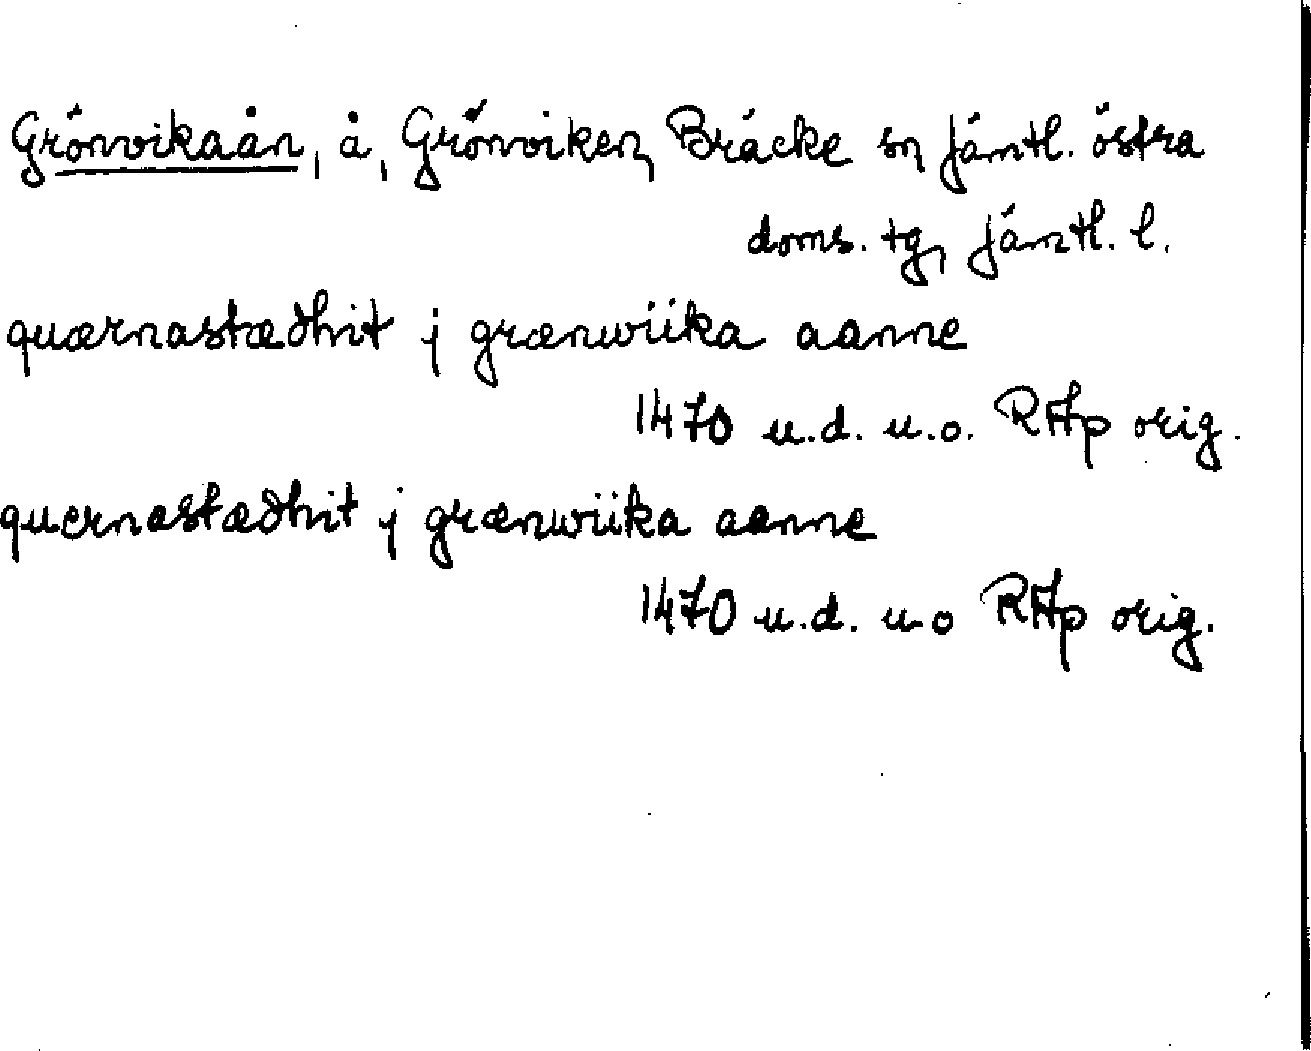 Grönvikaån, å, Grönviken, Bräcke sn Jämtl. östra
doms. tg, Jämtl. l.
quærnastædhit j grænwiika aanne
1470 u.d. u.o. RAp orig.
quernastædhit j grænwiika aanne
1470 u.d. u.o RAp orig.